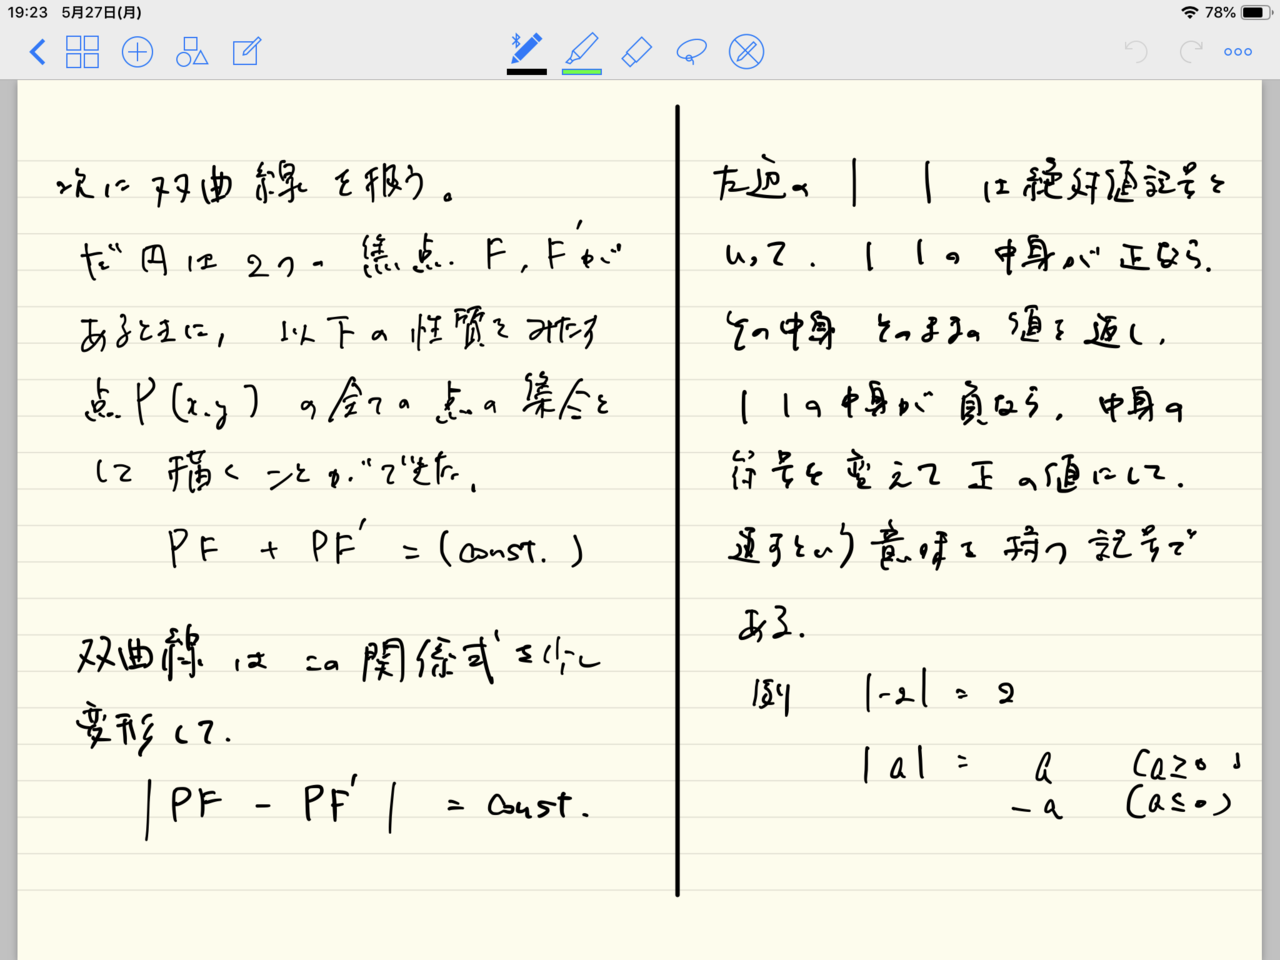 19:23 5月27日(月)
78%
次に双曲線を扱う。
だ円は2つの焦点 F, F'が
あるときに, 以下の性質をみたす
点P(x,y)の全ての点の集合と
して描くことができた.
PF + PF' = (const.)
双曲線はこの関係式を少し
変形して.
|PF - PF'| = const.
左辺の| |は絶対値記号と
いって. | |の中身が正なら.
その中身そのままの値を返し.
| |の中身が負なら. 中身の
符号を変えて正の値にして.
返すという意味を持つ記号で
ある.
例 |-2| = 2
|a| = a (a≥0)
-a (a≤0)